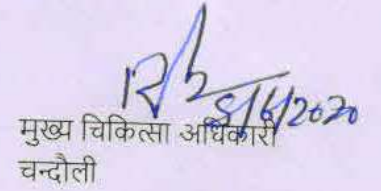 8/6/2020
मुख्य चिकित्सा अधिकारी
चन्दौली